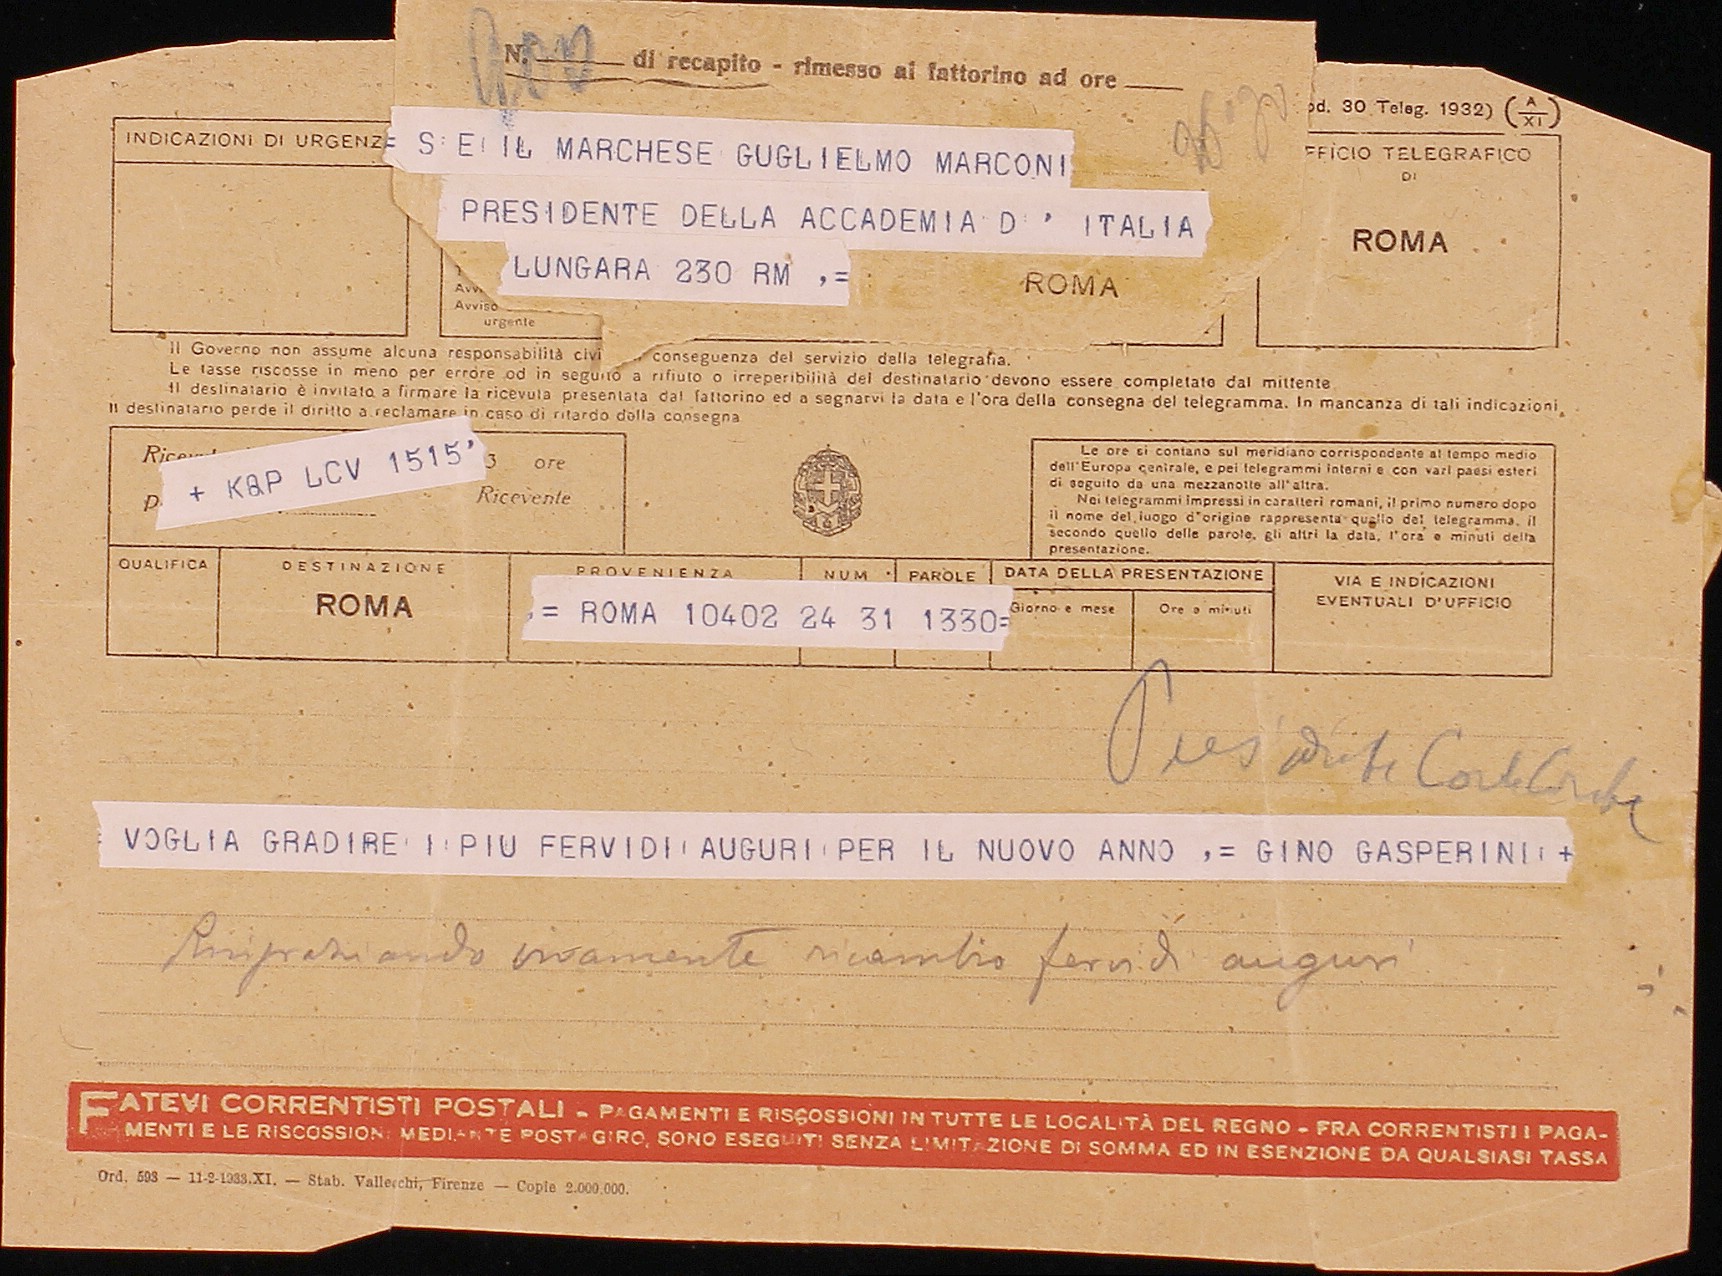 N. di recapito - rimesso al fattorino ad ore
od. 30 Teleg. 1932) (A/XI)
INDICAZIONI DI URGENZ
= S E IL MARCHESE GUGLIELMO MARCONI
PRESIDENTE DELLA ACCADEMIA D ' ITALIA
LUNGARA 230 RM ,=
ROMA
Avviso
urgente
FFICIO TELEGRAFICO
DI
ROMA
Il Governo non assume alcuna responsabilità civi conseguenza del servizio della telegrafia.
Le tasse riscosse in meno per errore od in seguito a rifiuto o irreperibilità del destinatario devono essere completate dal mittente
Il destinatario è invitato a firmare la ricevuta presentata dal fattorino ed a segnarvi la data e l'ora della consegna del telegramma. In mancanza di tali indicazioni,
Il destinatario perde il diritto a reclamare in caso di ritardo della consegna
+ KQP LCV 1515'
3 ore
Ricevente
Le ore si contano sul meridiano corrispondente al tempo medio
dell'Europa centrale, e pei telegrammi interni e con vari paesi esteri
di seguito da una mezzanotte all'altra.
Nei telegrammi impressi in caratteri romani, il primo numero dopo
il nome del luogo d'origine rappresenta quello del telegramma, il
secondo quello delle parole, gli altri la data, l'ora e minuti della
presentazione.
QUALIFICA
DESTINAZIONE
ROMA
PROVENIENZA
NUM
PAROLE
DATA DELLA PRESENTAZIONE
Giorno e mese
Ore e minuti
VIA E INDICAZIONI
EVENTUALI D'UFFICIO
,= ROMA 10402 24 31 1330=
Presidente Corte Conti
= VOGLIA GRADIRE I PIU FERVIDI AUGURI PER IL NUOVO ANNO ,= GINO GASPERINI +
Ringraziando vivamente ricambio fervidi auguri
FATEVI CORRENTISTI POSTALI - PAGAMENTI E RISCOSSIONI IN TUTTE LE LOCALITÀ DEL REGNO - FRA CORRENTISTI I PAGA-
MENTI E LE RISCOSSIONI MEDIANTE POSTAGIRO, SONO ESEGUITI SENZA LIMITAZIONE DI SOMMA ED IN ESENZIONE DA QUALSIASI TASSA
Ord. 593 — 11-2-1933.XI. — Stab. Vallecchi, Firenze — Copie 2.000.000.